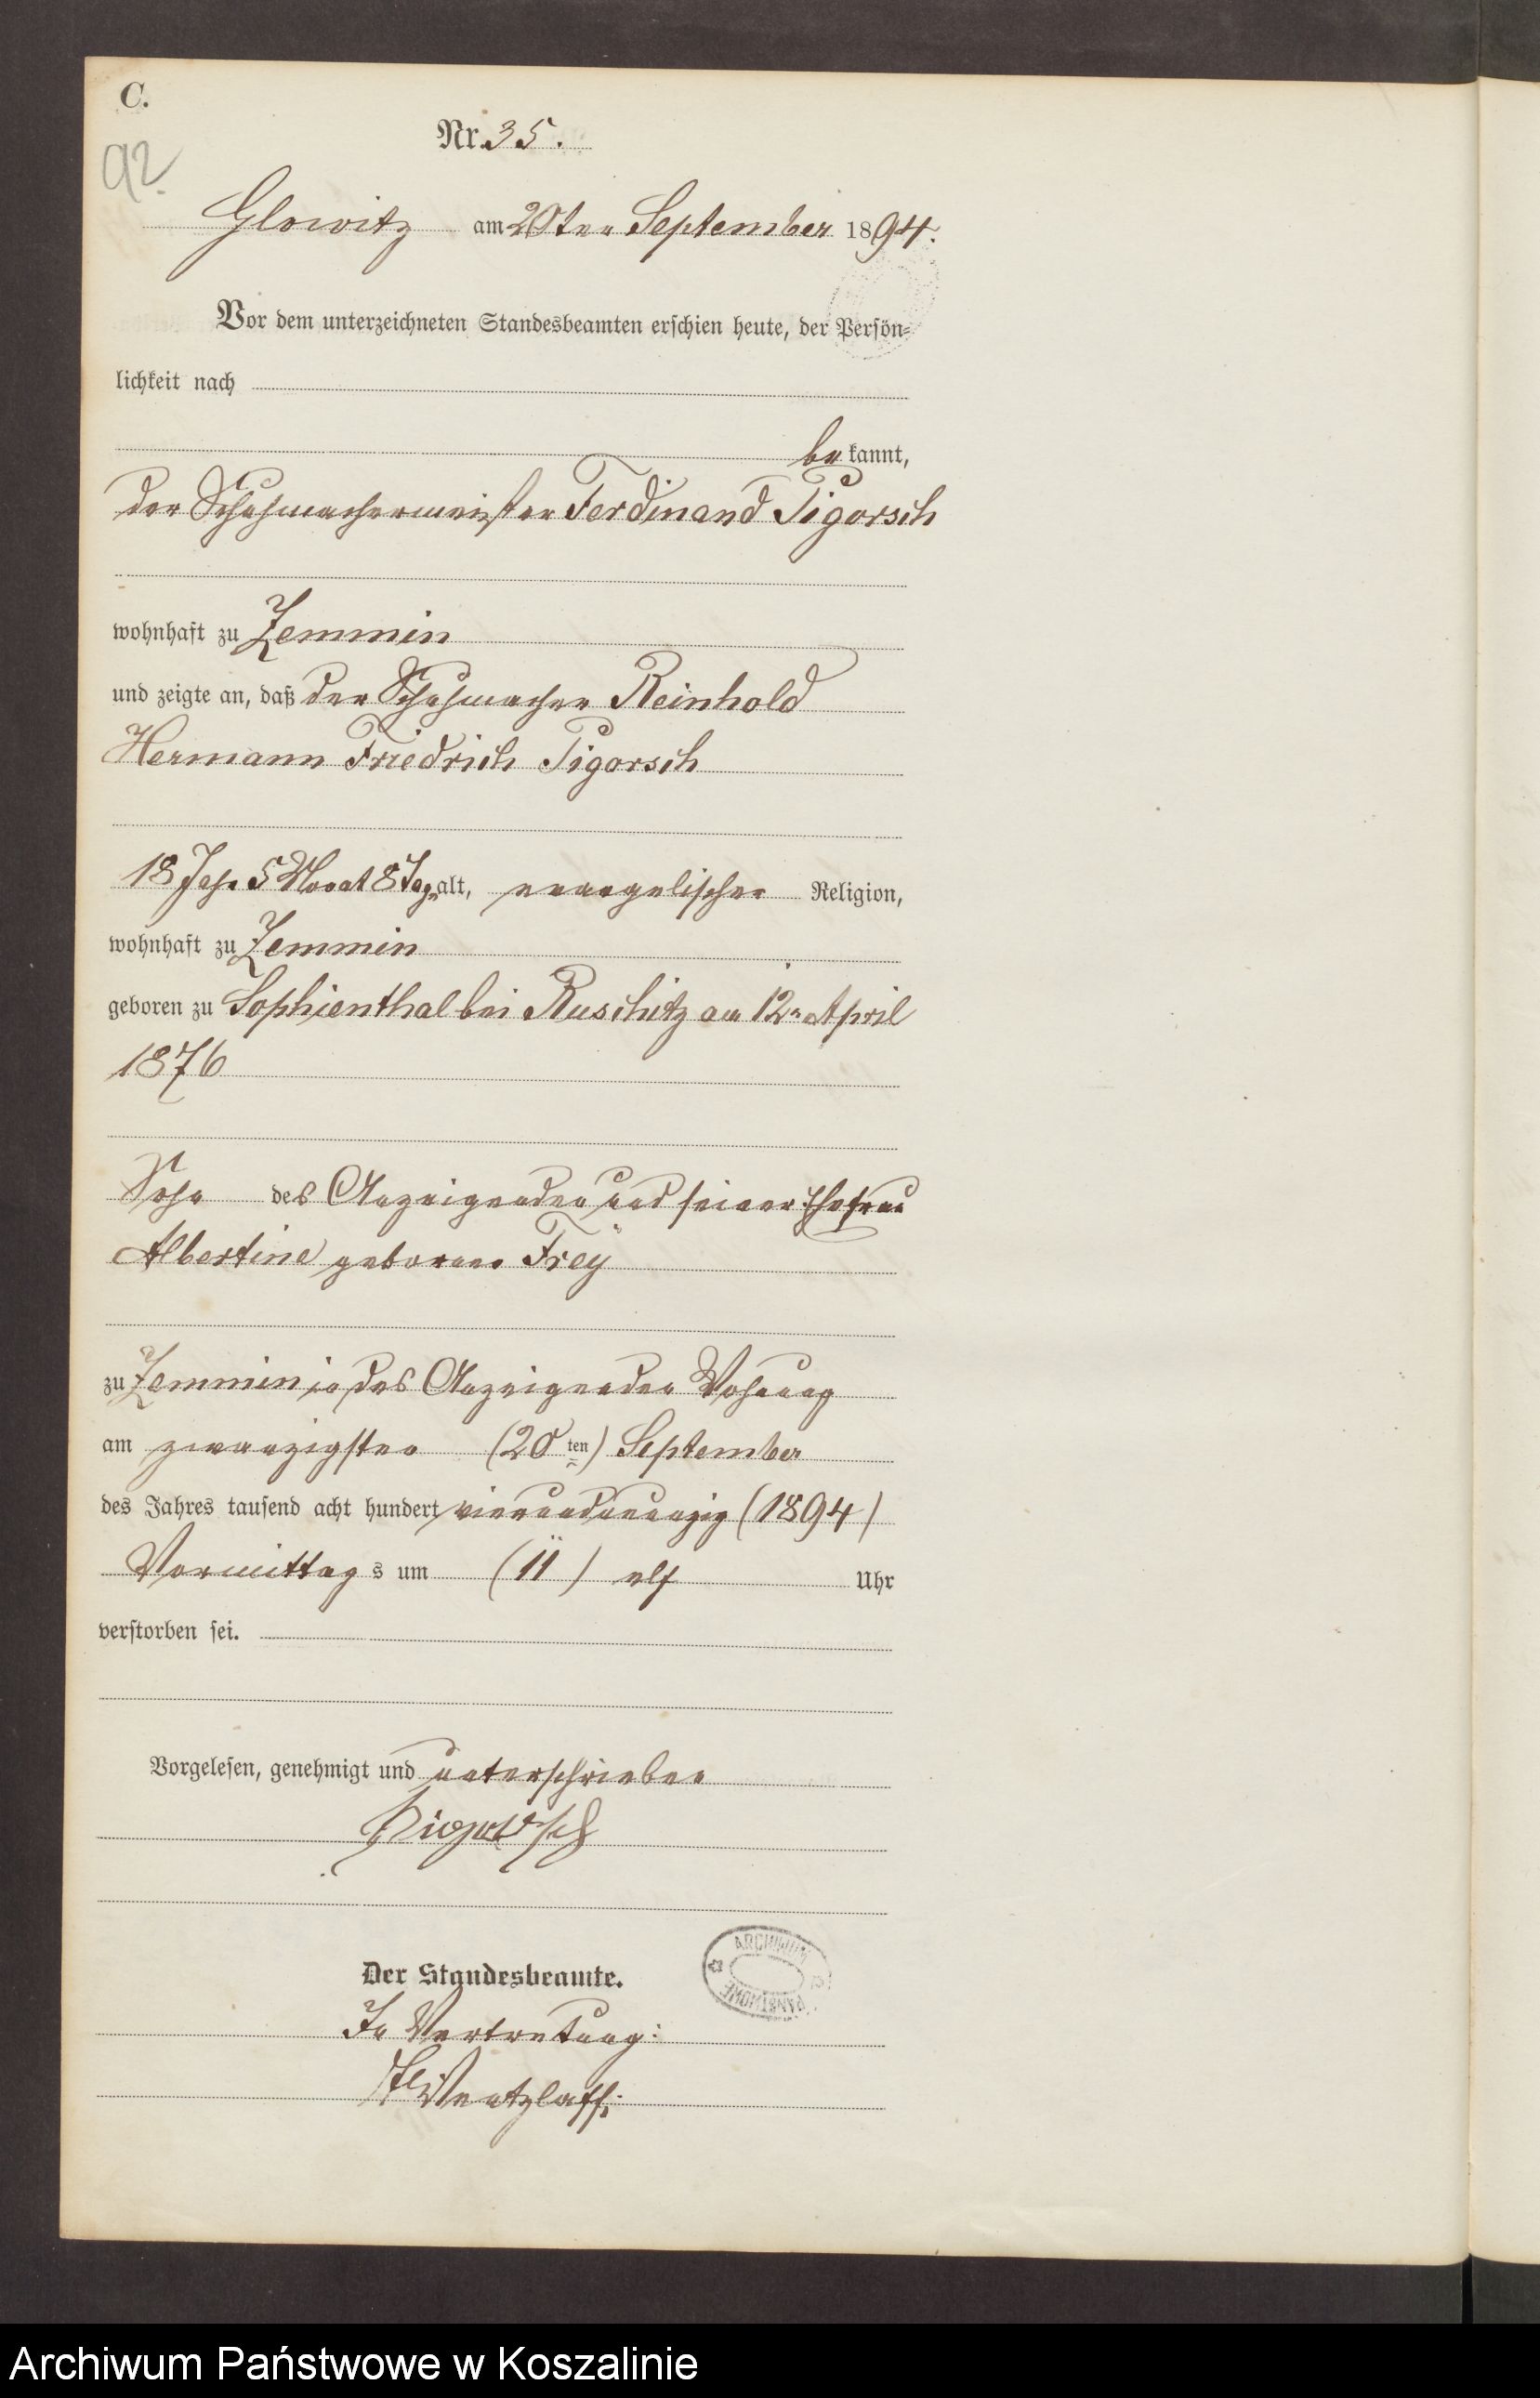 C.
Nr. 35.
92.
Glowitz am 20ten September 1894.
Vor dem unterzeichneten Standesbeamten erschien heute, der Persön-
lichkeit nach
bekannt,
der Schuhmachermeister Ferdinand Pigorsch
wohnhaft zu Zemmin
und zeigte an, daß der Schuhmacher Reinhold
Hermann Friedrich Pigorsch
18 Jahr 5 Monat 8 Tag alt, evangelischer Religion,
wohnhaft zu Zemmin
geboren zu Sophienthal bei Ruschitz am 12n April
1876
Sohn des Anzeigenden und seiner Ehefrau
Albertine geborene Frey
zu Zemmin in des Anzeigenden Wohnung
am zwanzigsten (20ten) September
des Jahres tausend acht hundert vierundneunzig (1894)
Vormittags um (11) elf Uhr
verstorben sei.
Vorgelesen, genehmigt und unterschrieben
Pigorsch
Der Standesbeamte.
ARCHIWUM
PAŃSTWOWE
In Vertretung:
Wentzlaff.
Archiwum Państwowe w Koszalinie